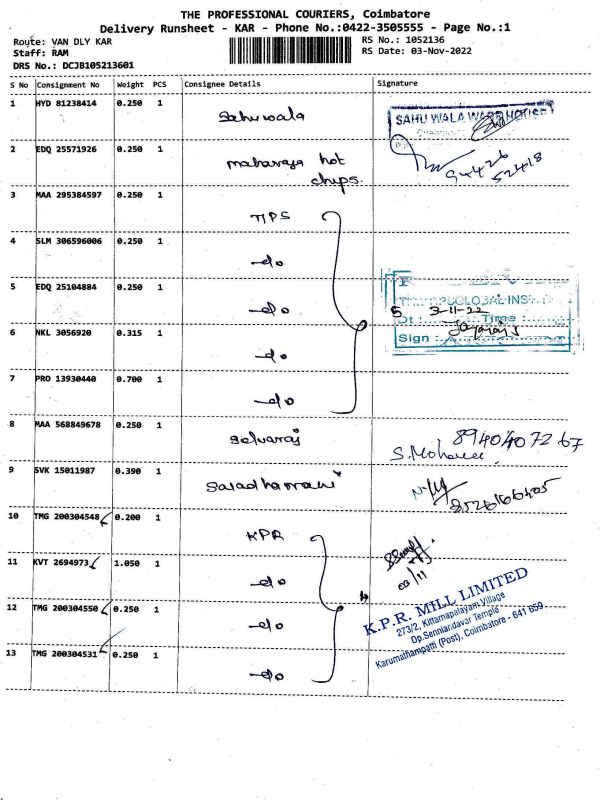 THE PROFESSIONAL COURIERS, Coimbatore
Delivery Runsheet - KAR - Phone No.:0422-3505555 - Page No.:1
Route: VAN DLY KAR
RS No.: 1052136
Staff: RAM
RS Date: 03-Nov-2022
DRS No.: DCJB105213601
S No Consignment No Weight PCS Consignee Details Signature
1 HYD 81238414 0.250 1 Sahuwala
SAHU WALA WAREHOUSE
2 EDQ 25571926 0.250 1 maharaja hot
chips.
94426
52418
3 MAA 295384597 0.250 1 TIPS
4 SLM 306596006 0.250 1 -do
5 EDQ 25104884 0.250 1 -do
5 3-11-22
Dt : Time :
Sign :
6 NKL 3056920 0.315 1 -do
7 PRO 13930440 0.700 1 -do
8 MAA 568849678 0.250 1 Selvaraj
8940407267
9 SVK 15011987 0.390 1
8526166405
10 TMG 200304548 0.200 1 KPR
11 KVT 2694973 1.050 1 -do
03/11
12 TMG 200304550 0.250 1 -do
K.P.R. MILL LIMITED
273/2, Kittamapalayam Village
Op.Senniandavar Temple
Karumathampatti (Post), Coimbatore - 641 659
13 TMG 200304531 0.250 1 -do